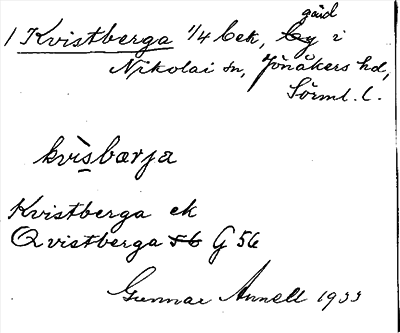 gård
1 Kvistberga 1/4 bek, by i
Nikolai sn, Jönåkers hd,
Sörml. l.
kvìsbarja
Kvistberga ek
Qvistberga 56 G 56
Gunnar Annell 1933